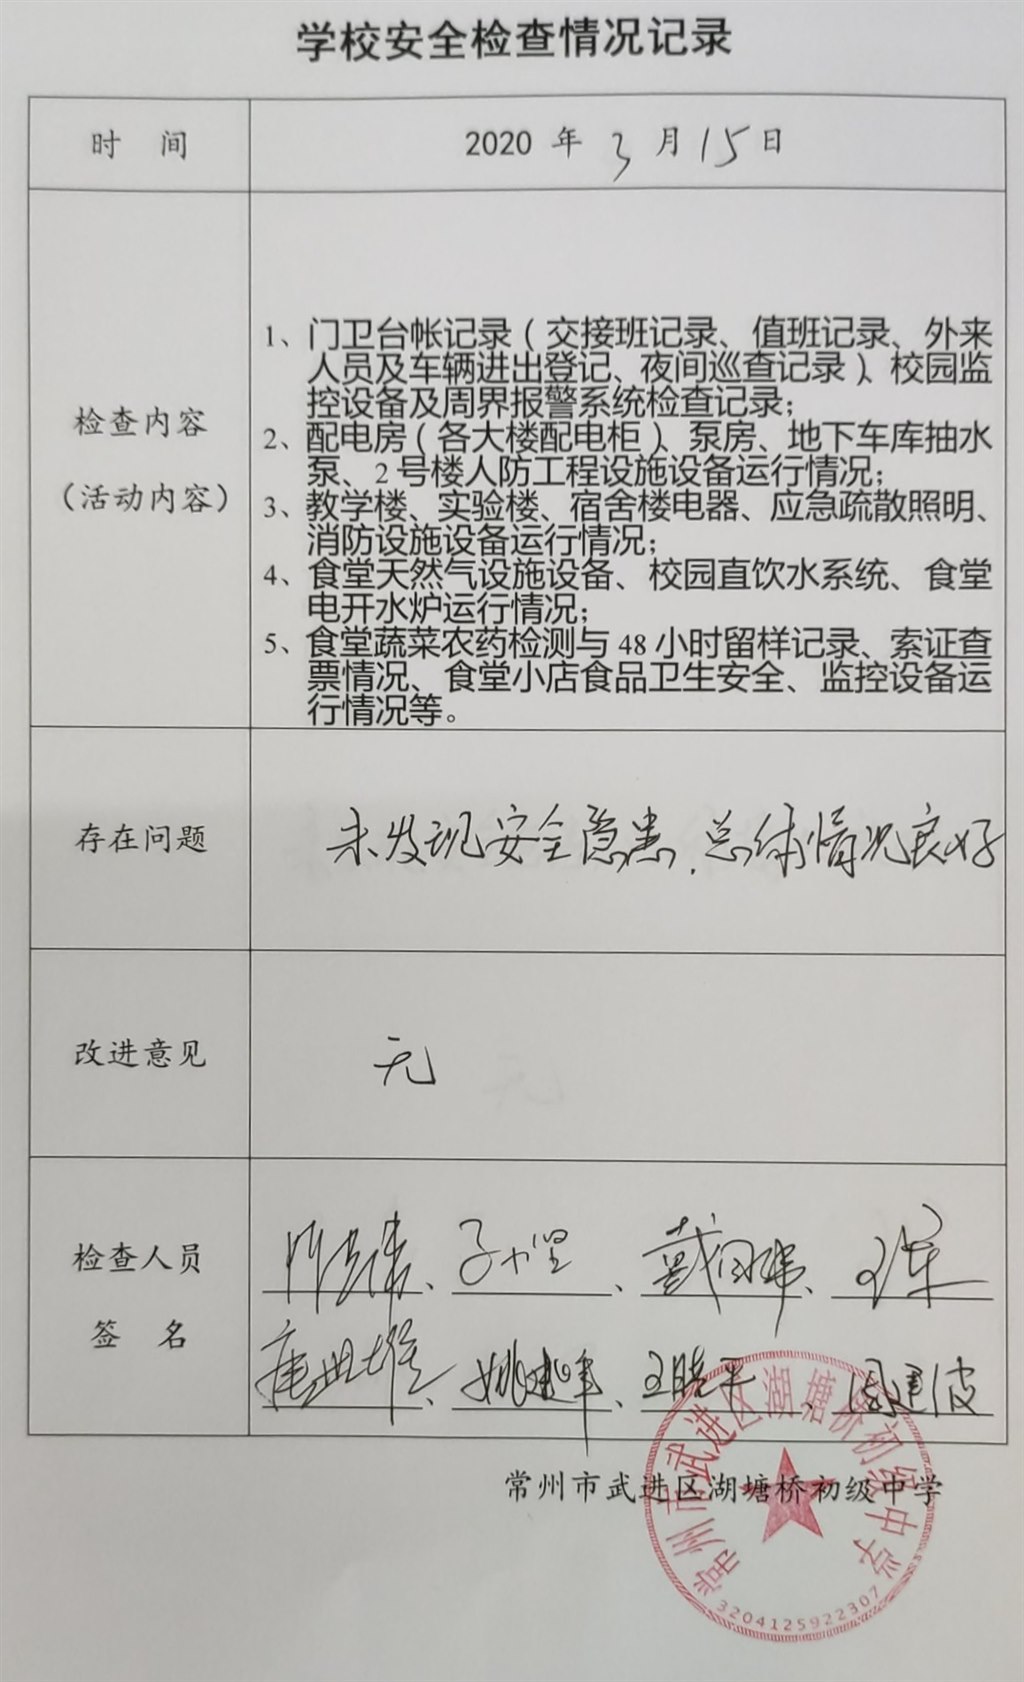 学校安全检查情况记录
时 间
2020 年 3 月 15 日
检查内容
（活动内容）
1、门卫台帐记录（交接班记录、值班记录、外来
人员及车辆进出登记、夜间巡查记录）、校园监
控设备及周界报警系统检查记录；
2、配电房（各大楼配电柜）、泵房、地下车库抽水
泵、2 号楼人防工程设施设备运行情况；
3、教学楼、实验楼、宿舍楼电器、应急疏散照明、
消防设施设备运行情况；
4、食堂天然气设施设备、校园直饮水系统、食堂
电开水炉运行情况；
5、食堂蔬菜农药检测与 48 小时留样记录、索证查
票情况、食堂小店食品卫生安全、监控设备运
行情况等。
存在问题
未发现安全隐患，总体情况良好
改进意见
无
检查人员
签 名
王军
王晓平 周建波
常州市武进区湖塘桥初级中学
常州市武进区湖塘桥初级中学
3204125922307